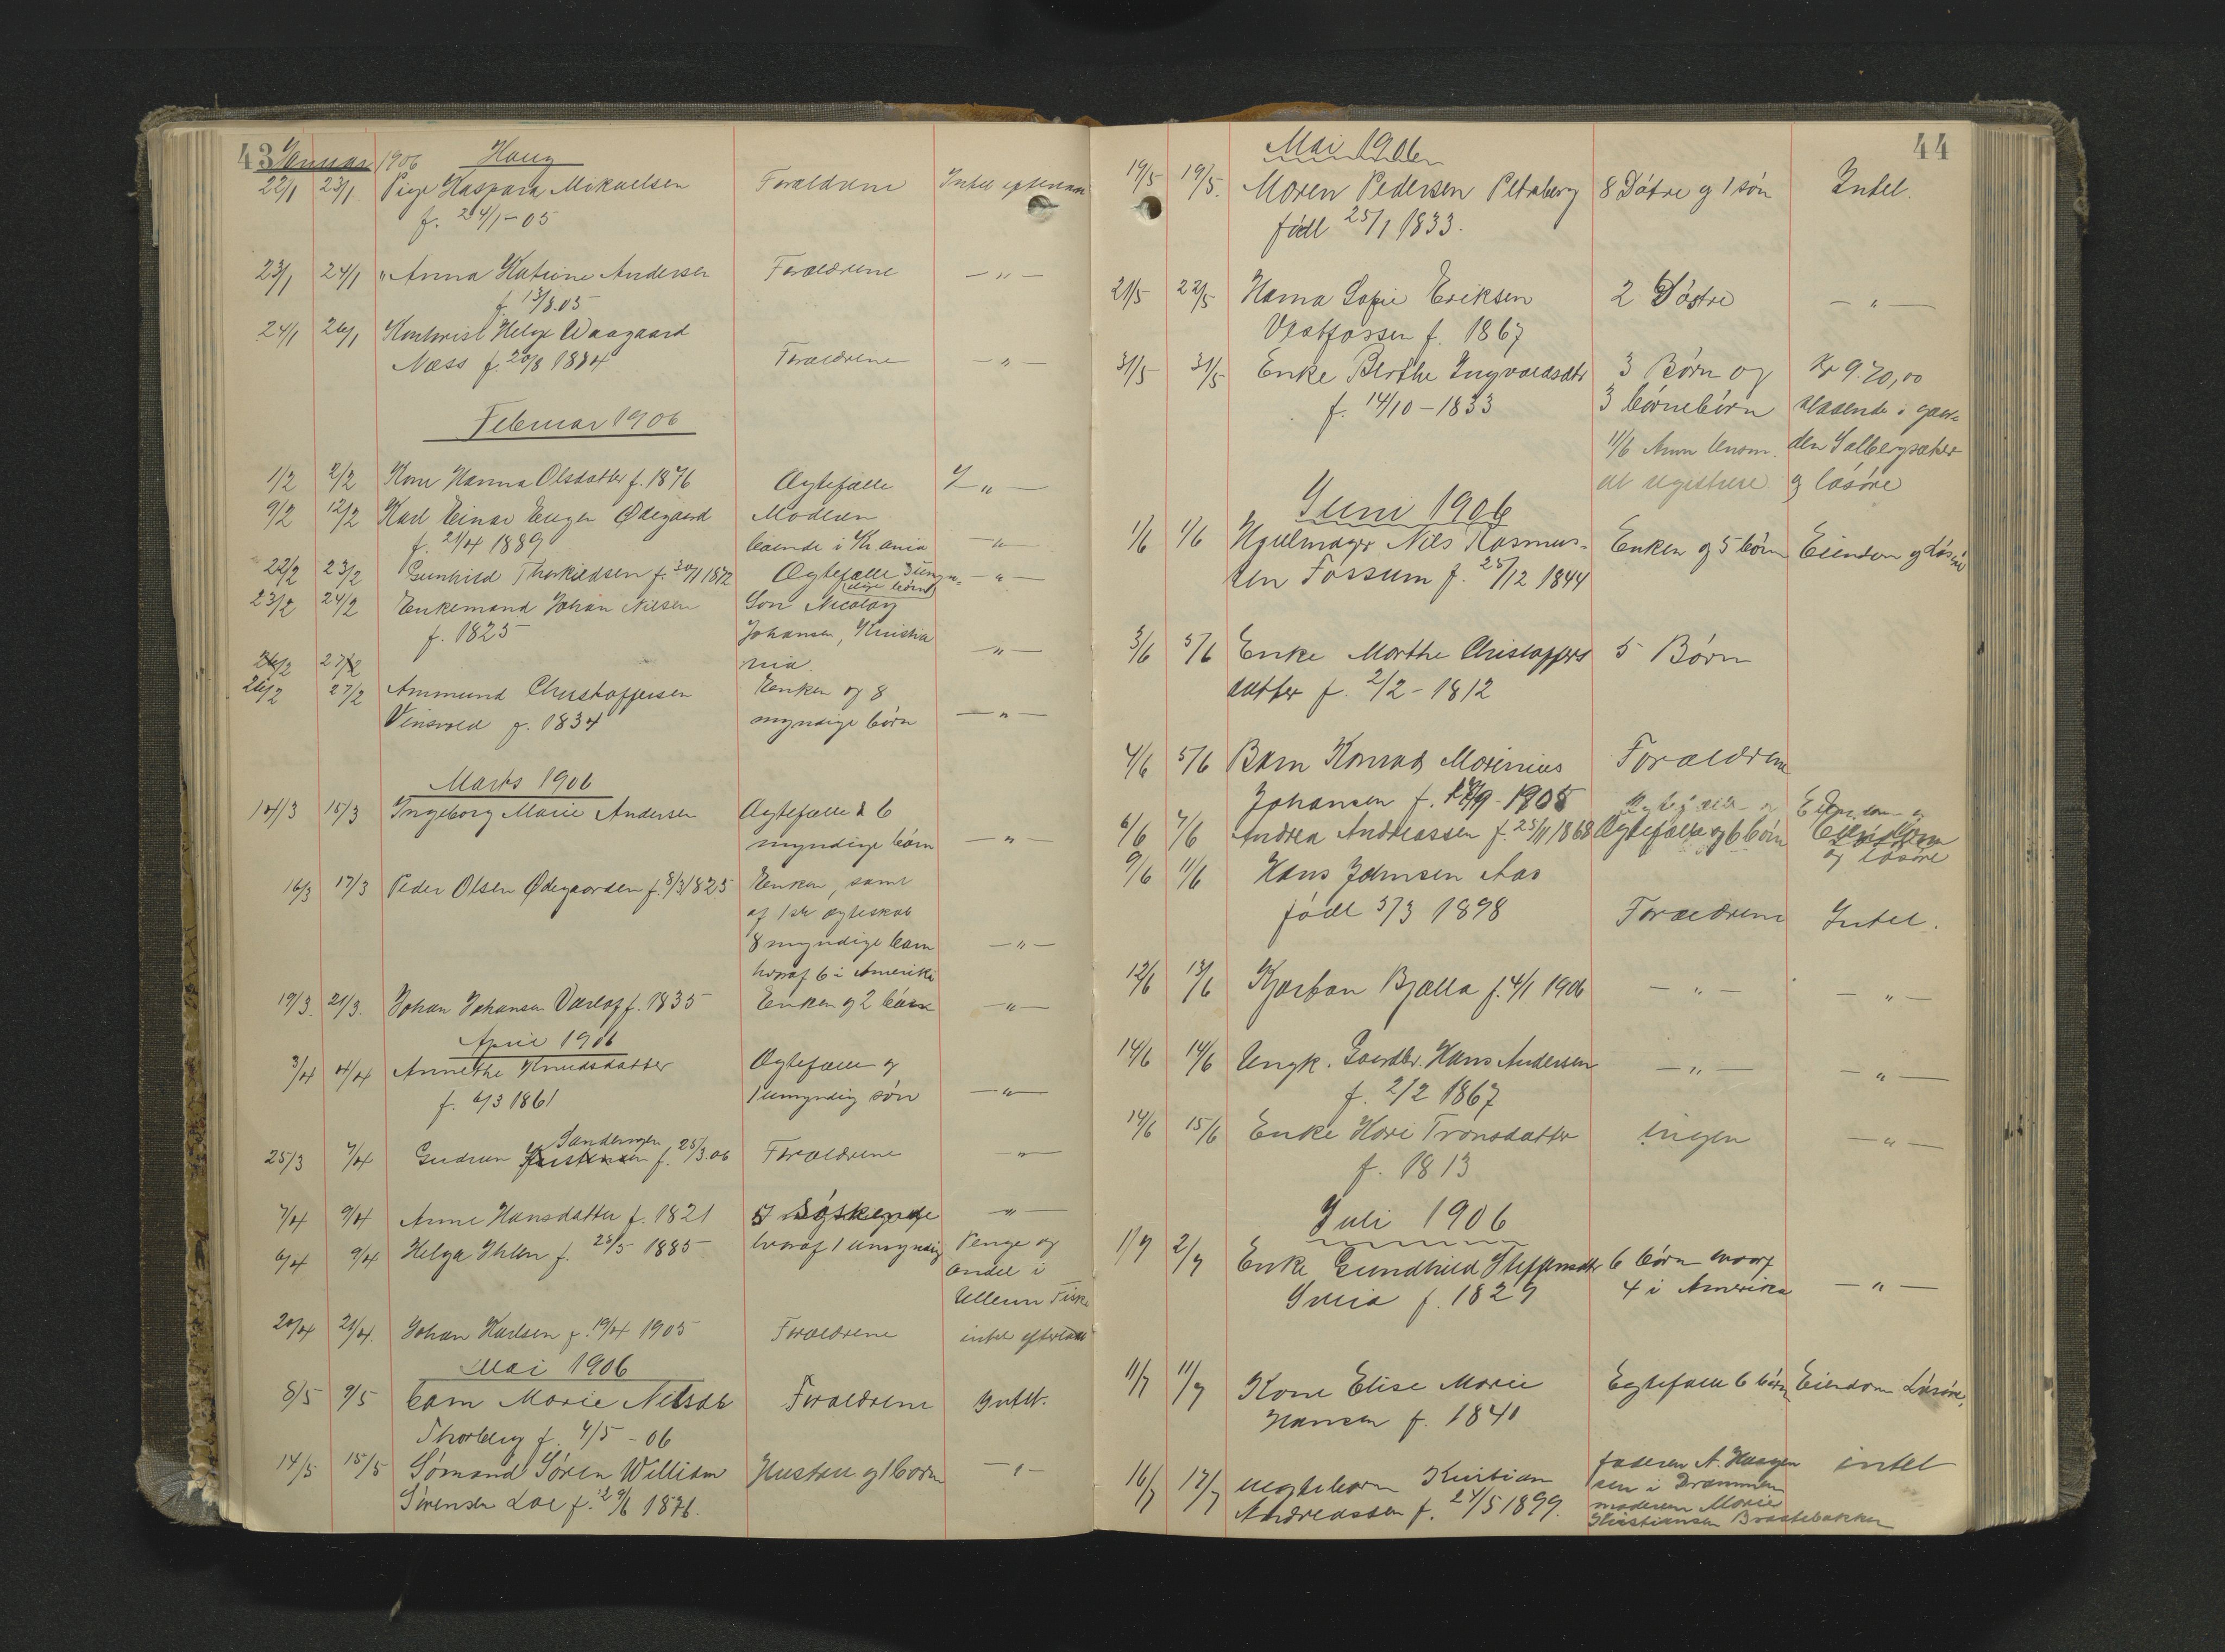 43 Januar 1906 Haug
22/1 23/1 Pige Kaspara Mikaelsen Forældrene Intet efterladt
f. 24/1-05
23/1 24/1 " Anna Katrine Andersen Forældrene — " —
f. 13/8.05
24/1 26/1 Kontorist Helge Waagaard
Næss f. 20/8 1884 Forældrene — " —
Februar 1906
1/2 2/2 Kone Hanna Olsdatter f. 1876 Ægtefælle — " —
9/2 12/2 Karl Einar Eugen Ødegaard Moderen
f. 21/4 1889 boende i Kr.ania — " —
22/2 23/2 Gunhild Thorkildsen f. 30/11 1872 Ægtefælle 3 umyn- — " —
dige børn
23/2 24/2 Enkemand Johan Nilsen Søn Nicolay
f. 1825 Johansen, Kristia — " —
26/2 27/2 nia.
26/2 27/2 Ammund Christoffersen Enken og 8
Vinsvold f. 1834 myndige børn — " —
Marts 1906
14/3 15/3 Ingeborg Marie Andersen Ægtefælle & 6
myndige børn — " —
16/3 17/3 Peder Olsen Ødegaarden f. 8/3 1825 Enken, samt
af 1ste ægteskab
8 myndige børn — " —
hvoraf 6 i Amerika
19/3. 21/3. Johan Johansen Varlo f. 1835 Enken og 2 børn — " —
April 1906
3/4 4/4 Annethe Knudsdatter Ægtefælle og
f. 6/3 1861 1 umyndig søn — " —
Sandersen
25/3 7/4 Gudrun Kristensen f. 25/3.06 Forældrene — " —
7/4 9/4 Anne Hansdatter f. 1821 5 Søskende — " —
6/4 9/4 Helga Ihlen f. 25/5 1885 hvoraf 1 umyndig Penge og
andel i
Ullern Fiske
20/4 21/4. Johan Karlsen f. 19/4 1905 Forældrene intet efterladt
Mai 1906
8/5 9/5 barn Marie Nilsdt Forældrene Intet.
Thorberg f. 4/5 - 06
14/5 15/5 Sømand Søren William Hustru og 1 barn — " —
Sørensen Loe f. 29/6 1876.
44
Mai 1906
19/5 19/5. Maren Pedersen Petraberg 8 Døtre og 1 søn Intet.
født 25/1 1833.
21/5 22/5 Hanna Sofie Eriksen 2 Søstre — " —
Vestfossen f. 1867
31/5 31/5 Enke Berthe Ingvardsdtr 3 Børn og Kr 970,00
f. 14/10-1833 3 børnebørn staaende i gaar-
11/6 Anm Unom. den Solbergsæter
at registrere og løsøre
Juni 1906
1/6 1/6 Hjulmager Nils Rasmus- Enken og 5 børn Eiendom og Løsøre
sen Fossum f. 25/12 1844
3/6 5/6 Enke Marthe Christoffers 5 Børn
datter f. 2/2-1812
4/6 5/6 Barn Konrad Marinius Forældrene
Johansen f. 9-1905
6/6 7/6 Andrea Andreassen f. 23/11 1868 Ægtefælle og 6 børn Eiendom
og løsøre
9/6 11/6 Hans Johnsen Aas
født 3/3 1898 Forældrene Intet.
12/6 13/6 Kjorban Bjælla f. 4/1 1906 — " — — " —
14/6 14/6 Ungk. Gaardbr. Hans Andersen — " — — " —
f. 2/2 1867
14/6 15/6 Enke Kari Tronsdatter Ingen — " —
f. 1813
Juli 1906
1/7 2/7 Enke Gundhild Steffensdtr 6 børn hvoraf
f. 1829 4 i Amerika — " —
11/7 11/7 Kone Elise Marie Egtefælle 6 børn Eiendom Løsøre.
Hansen f. 1841
16/7 17/7 uegte barn Kristian faderen A. Haagen intet
Andreassen f. 24/5 1899. sen i Drammen
moderen Marie
Kristiansen Braatebakken